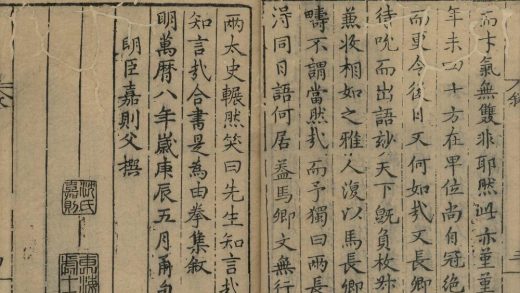 而才氣無雙非耶然此亦董董
年未四十方在卑位尚自冠絕
而更令後日又何如哉又長卿
待吮而出語妙天下既負枚
兼收相如之雅人復以馬長卿
疇不謂當然哉而予獨曰兩長
淂同日語何居蓋馬卿文無行
兩太史輾然笑曰先生知言哉
知言哉合書是為由拳集敘
明萬曆八年歲庚辰五月甬句
明臣嘉則父撰
沈氏嘉則